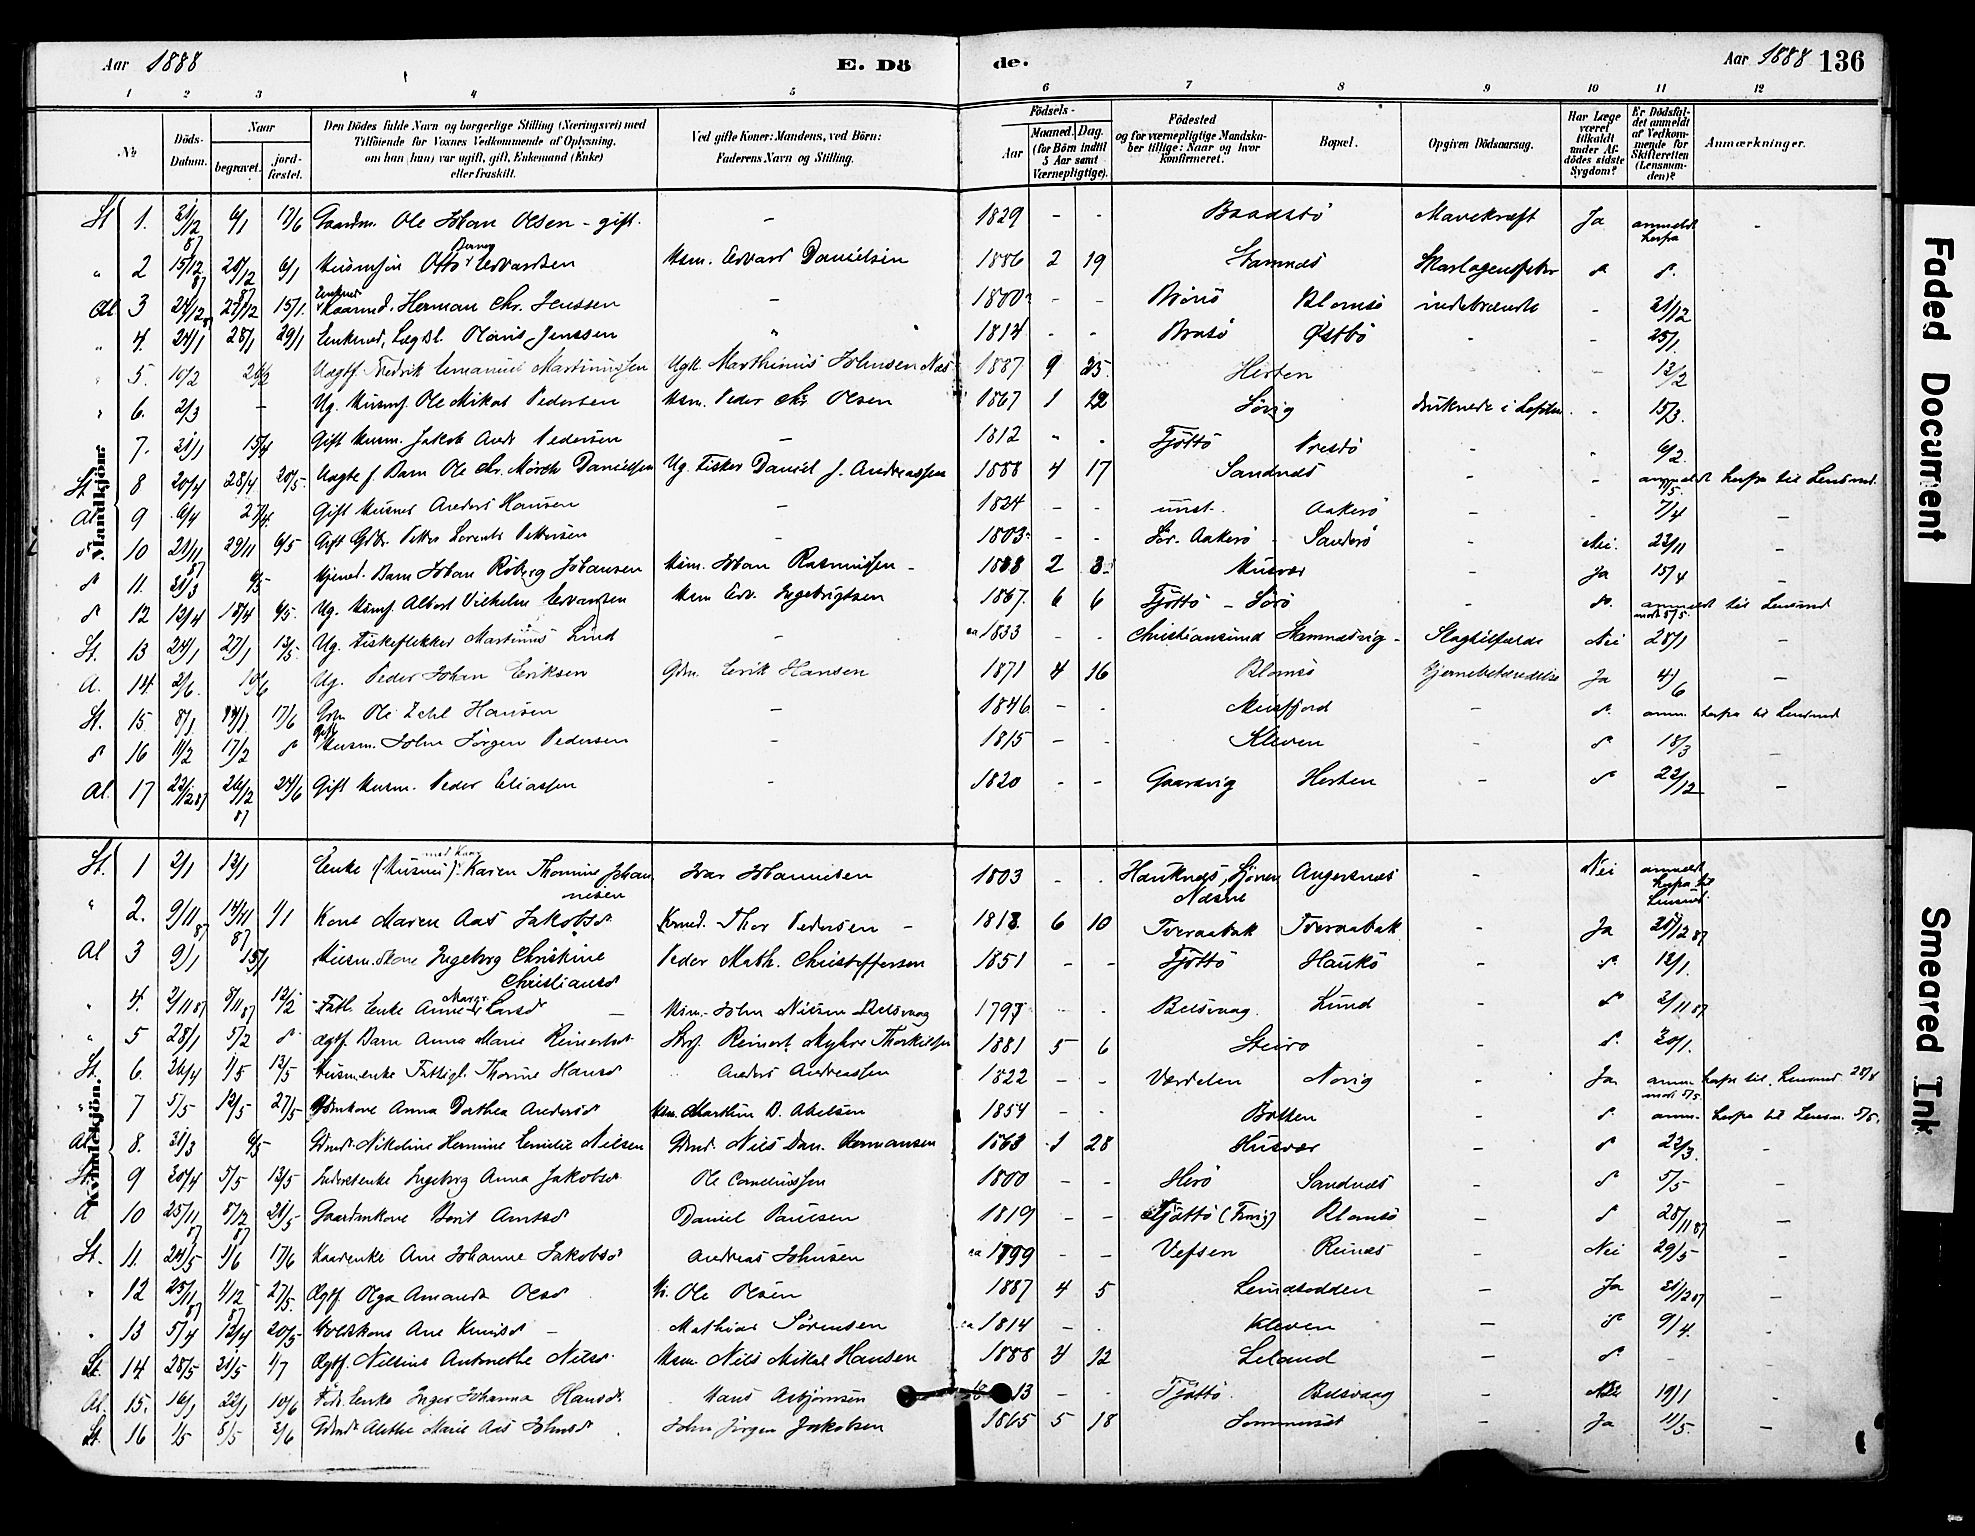 Aar 1888
E. Dö
de.
Aar 1888 136
1 2 3 4 5 6 7 8 9 10 11 12
No
Döds-Datum.
Naar
begravet.
jord-fæstet.
Den Dödes fulde Navn og borgerlige Stilling (Næringsvei) med
Tilföiende for Voxnes Vedkommende af Oplysning,
om han (hun) var ugift, gift, Enkemand (Enke)
eller fraskilt.
Ved gifte Koner: Mandens, ved Börn:
Faderens Navn og Stilling.
Födsels-
Aar
Maaned. Dag.
(for Börn indtil
5 Aar samt
Værnepligtige).
Födested
og for værnepligtige Mandska-
ber tillige: Naar og hvor
konfirmeret.
Bopæl.
Opgiven Dödsaarsag.
Har Læge
været
tilkaldt
under Af-
dödes sidste
Sygdom?
Er Dödsfal-
det anmeldt
af Vedkom-
mende for
Skifteretten
(Lensman-
den)?
Anmærkninger.
Mandkjön.
St 1. 31/12 87 6/1 17/6 Gaardm. Ole Johan Olsen - gift. - 1829 - - Mavekræft Ja anmeldt herfra -
" 2 15/12 87 6/1 Otto Edvardsen Hsm. Edvard Danielsen 1886 2 19
Al 3 24/12 87 27/12 15/1. Herman Chr. Jenssen - 1800 - - Brönö Blomsö - 31/12
" 4. 24/1 28/1 29/1 Enkmd. Lægdsl. Jenssen " 1814 - - Brasö Østbö - - 25/1.
" 5. 10/2 26/2 Uægtf. Fredrik Emanuel Martinussen Ugk. Marthinus Johnsen Næs 1887 9 25. Herten - - 12/2
" 6. 2/3 - Ug. Husmf. Ole Mikal Pedersen Hsm. Peder Chr. Olsen 1867 1 12 Sövig druknede i Lofoten. - 15/3.
7. 31/1 15/4 Gift Husm. Jakob Andr. Pedersen - 1812 - - Tjöttö Præstö - 6/2.
St. 8 20/4 28/4 20/5. Uægte f. Barn Ole Chr. Mörch Danielsen Ug. Fisker Daniel J. Andreassen 1888 4 17 Sandnæs - - anmeldt herfra til Lensmd. 5/5.
Al 9 6/4 27/4. Gift Husmd Anders Hansen - 1824 - - Aakerö - - 7/4 -
10 21/11 87 29/11 6/5 Gift Gdbr. Petter Lorents Pettersen - 1803 - - Sör. Aakerö - Sanderö - Nei. 22/11 -
11. 31/3 6/5 Barn Johan Röberg Johansen Hsm. Johan Rasmussen - 1888 2 3 Husvær - Ja 15/4 -
12 12/4 18/4 6/5. Ug. Husmf. Albert Vilhelm Edvardsen Hsm Edv. Ingebrigtsen 1867. 6 6 Tjöttö - Sörö - do. anmeldt til Lensmd mdt 5/5.
St. 13 24/1 27/1 13/5. Ug. Fiskeflekker Martinus Lind - ca 1833 - - Christiansund Hamnesvig - Slagtilfælde Nei 28/1 -
A. 14. 2/6. 10/6 Ug. Peder Johan Eriksen Gdm. Erik Hansen 1871 4 16 Blomsö Hjernebetændelse Ja 4/6 -
St. 15. 17/6 Gdm Ole Zahl Hansen - 1846 - - Meisfjord - anm. herfra til Lensmd
16 17/2 Gift Husm. John Jörgen Pedersen - 1815 - - Kleven - 18/3 -
Al. 17 22/12 87 26/12 87 24/6 Gift Husm. Peder Eliassen - 1820 - - Gaardvig Herten - 22/12 -
Kvindekjön.
St. 1 2/1 13/1 Enke (Husm.) Karen Thomine Johannesen Ivar Johannesen 1803 - - Hauknæs, Sjönen Næsne Angersnæs - Nei anmeldt herfra til Lensmd.
" 2. 9/11 87 14/11 87 1/1 Kone Maren Aas Jakobsd Thor Pedersen - 1818 6 10 Toeraabak Toeraabak - Ja 28/12 87
Al 3 9/1 15/1 Husm. Kone Ingeborg Christine Christiansd Peder Math. Christoffersen 1851 - - Tjöttö Haukö - 12/1.
" 4. 2/11 87 8/11 87 12/2 Fattl. Enke Anne Margr. Larsd Hsm. John Nielsen Belsvaag 1797 - - Belsvaag. Lund - 2/11 87
" 5 28/1 5/2 Ægtf. Barn Anna Marie Reinertsd. Reinert Myhre Thorkilsen 1881 5 6 Steiro - 30/1.
St. 6. 26/4 1/5 13/5 Husmenke Fattigl. Thorine Hansd Anders Andreassen 1822 - - Værdelen Norvig - Ja anm. herfra til Lensmd 20/5
" 7 5/5 12/5 27/5 Gdmkone Anna Dorthea Andersd Hsm. Marthin B. Abelsen 1854 - - Botten - anm. herfra til Lensm. 5/5.
Al. 8. 31/3 6/5 Nikoline Hermine Emilie Nilsen Gdmd. Nils Dan. Hermansen 1868 1 28 Husvær - 22/3. -
St. 9 30/4 5/5 13/5 Inderstenke Ingeborg Anna Jakobsd Ole Corneliussen 1800 - - Herö Sandnæs - 5/5 -
A 10 25/11 87 8/12 87 21/5 Gaardmkone Berit Arntsd Daniel Paulsen 1819 - - Tjöttö Blomsö - 28/11 87 -
St. 11. 24/5 1/6 17/6 Kaarenke Ane Johanne Jakobsd Andreas Johnsen ca 1799 - - Vefsen Reinæs - Nei 29/5 -
" 12 25/11 87 4/12 87 27/5. Ægtf. Olga Amanda Olsd Ole Olsen 1887 4 5 Leindsodden - Ja 21/12 87 -
" 13 5/4 12/4 20/5 Ane Knudsd - Mathias Sörensen ca 1814 - - Kleven - 9/4. -
St. 14 28/5 31/5 1/7 Ægtf. Nilsine Antonethe Nilsd. Hsm. Nils Mikal Hansen 1888 4 12 Leland - - -
Al. 15. 16/1 22/1 10/6 Enke Inger Johanna Hansd. Hans Asbjörnsen 1813 - - Tjöttö. Belsvaag - Nei 19/1 -
St. 16 1/5 8/5 3/6 Alethe Marie Aas Johnsd John Jörgen Jakobsen 1865 5 18 Sommerset - Ja 11/5. -
Faded Document
Smeared Ink